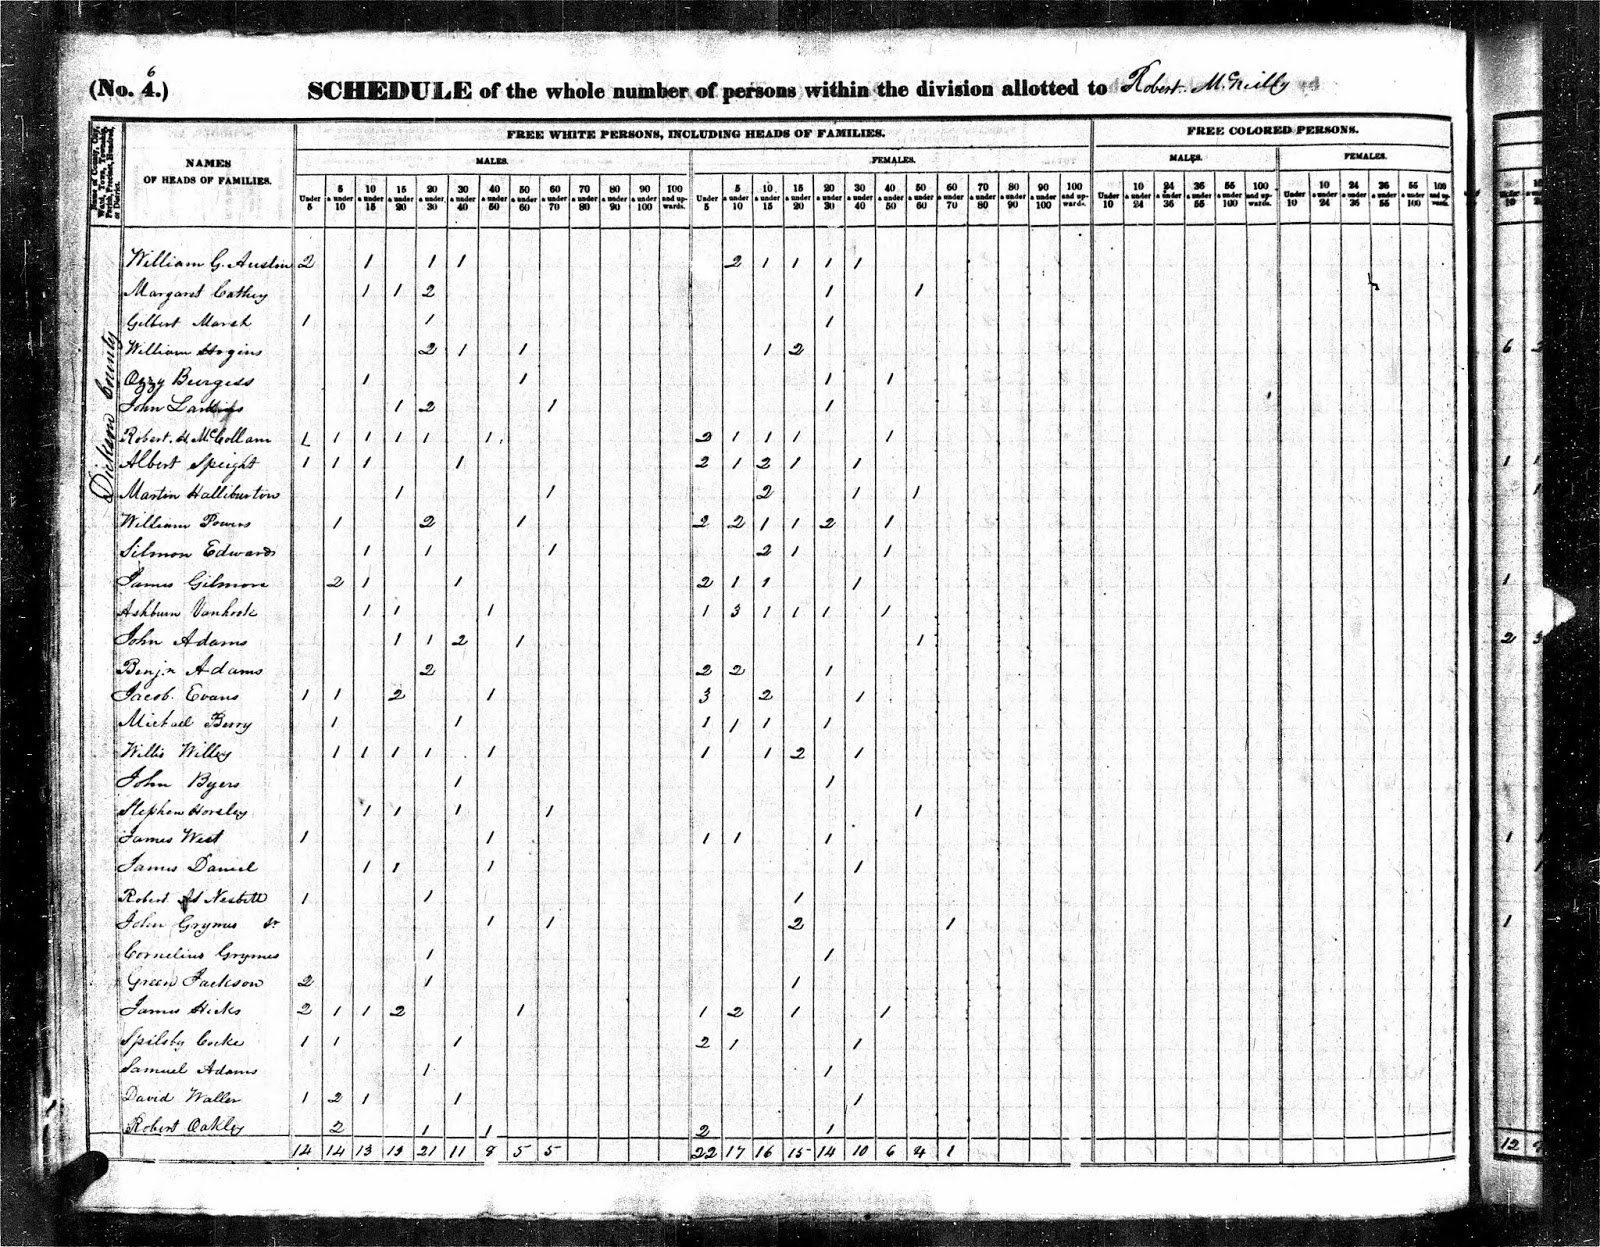 6
(No. 4.) SCHEDULE of the whole number of persons within the division allotted to Robert McNeilly
FREE WHITE PERSONS, INCLUDING HEADS OF FAMILIES. FREE COLORED PERSONS.
MALES. FEMALES. MALES. FEMALES.
Name of County, City, Ward, Town, Township, Parish, Precinct, Hundred, or District.
NAMES OF HEADS OF FAMILIES.
Under 5 5 & under 10 10 & under 15 15 & under 20 20 & under 30 30 & under 40 40 & under 50 50 & under 60 60 & under 70 70 & under 80 80 & under 90 90 & under 100 100 and upwards. Under 5 5 & under 10 10 & under 15 15 & under 20 20 & under 30 30 & under 40 40 & under 50 50 & under 60 60 & under 70 70 & under 80 80 & under 90 90 & under 100 100 and upwards. Under 10 10 & under 24 24 & under 36 36 & under 55 55 & under 100 100 and upwards. Under 10 10 & under 24 24 & under 36 36 & under 55 55 & under 100 100 and upwards.
Dickson County
William G. Austin 2 1 1 1 2 1 1 1 1
Margaret Cathey 1 1 2 1 1
Gilbert Marsh 1 1 1
William Hogins 2 1 1 1 2 6 2
Ozzy Burgess 1 1 1 1
John Larkins 1 2 1 1
Robert H McCollam 1 1 1 1 1 1 2 1 1 1 1
Albert Speight 1 1 1 1 2 1 2 1 1 1 1
Martin Halliburton 1 1 2 1 1 1
William Powers 1 2 1 2 2 1 1 2 1
Silmon Edwards 1 1 1 2 1 1
James Gilmore 2 1 1 2 1 1 1 1
Ashburn Vanhook 1 1 1 1 3 1 1 1 1
John Adams 1 1 2 1 1 2 3
Benjn Adams 2 2 2 1
Jacob Evans 1 1 2 1 3 2 1
Michael Berry 1 1 1 1 1 1
Willis Willey 1 1 1 1 1 1 1 2 1
John Byers 1 1
Stephen Horsley 1 1 1 1 1
James West 1 1 1 1 1 1 1
James Daniel 1 1 1 1 1
Robert Nesbitt 1 1 1
John Grymes Sr 1 1 2 1 1
Cornelius Grymes 1 1
Green Jackson 2 1 1
James Hicks 2 1 1 2 1 1 2 1 1
Spilsby Cocke 1 1 1 2 1 1
Samuel Adams 1 1
David Waller 1 2 1 1 1
Robert Oakley 2 1 1 2 1
14 14 13 13 21 11 8 5 5 22 17 16 15 14 10 6 4 1 12